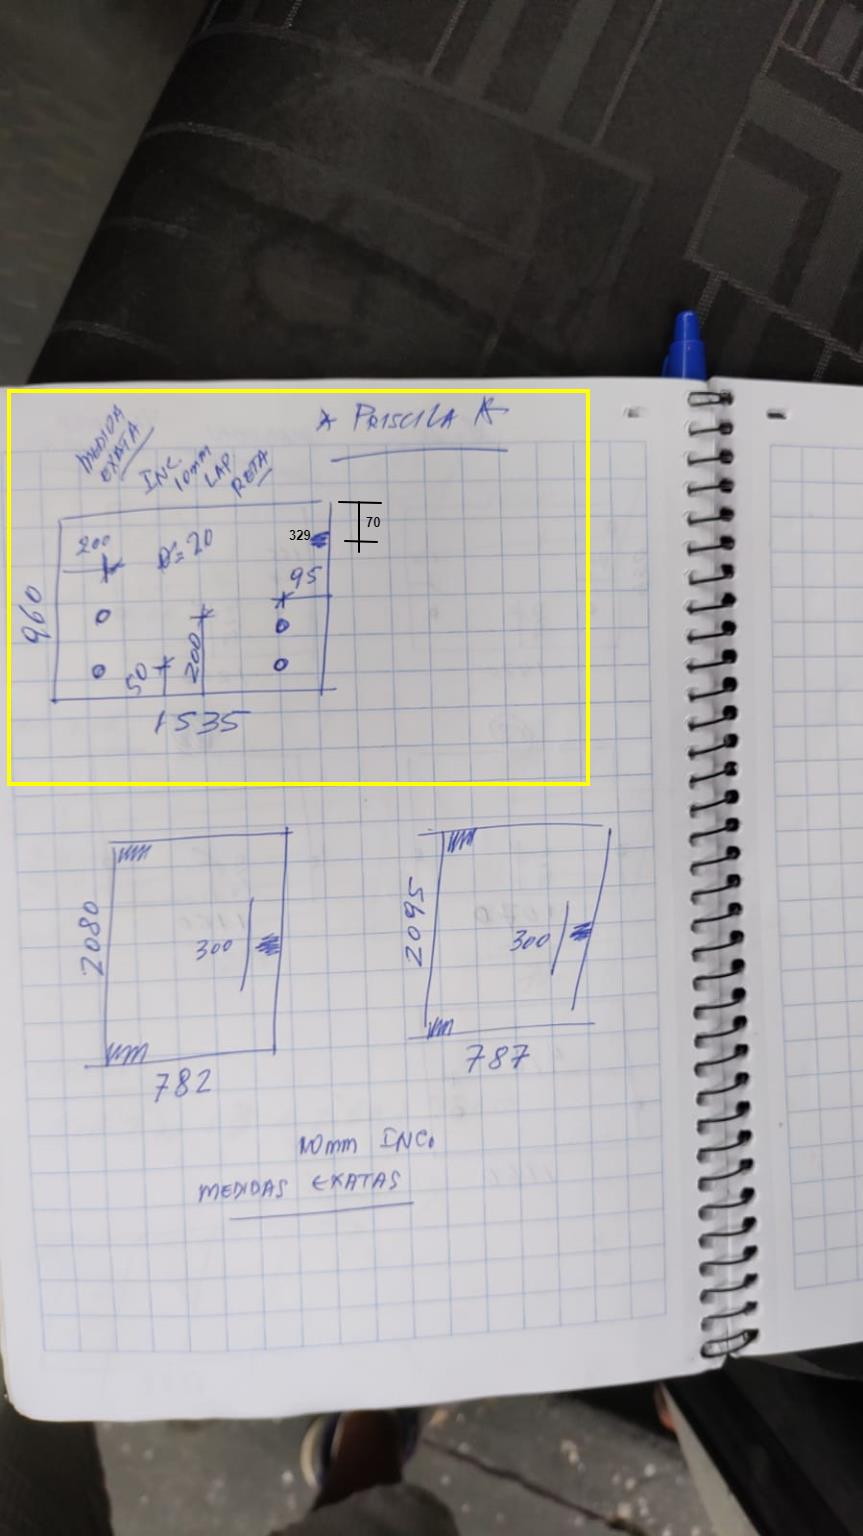 * PRISCILA *
MEDIDA
EXATA
INC.
10mm
LAP
RETA
70
200
Ø=20
329
95
960
50
200
1535
2080
300
782
2095
300
787
10mm INC.
MEDIDAS EXATAS